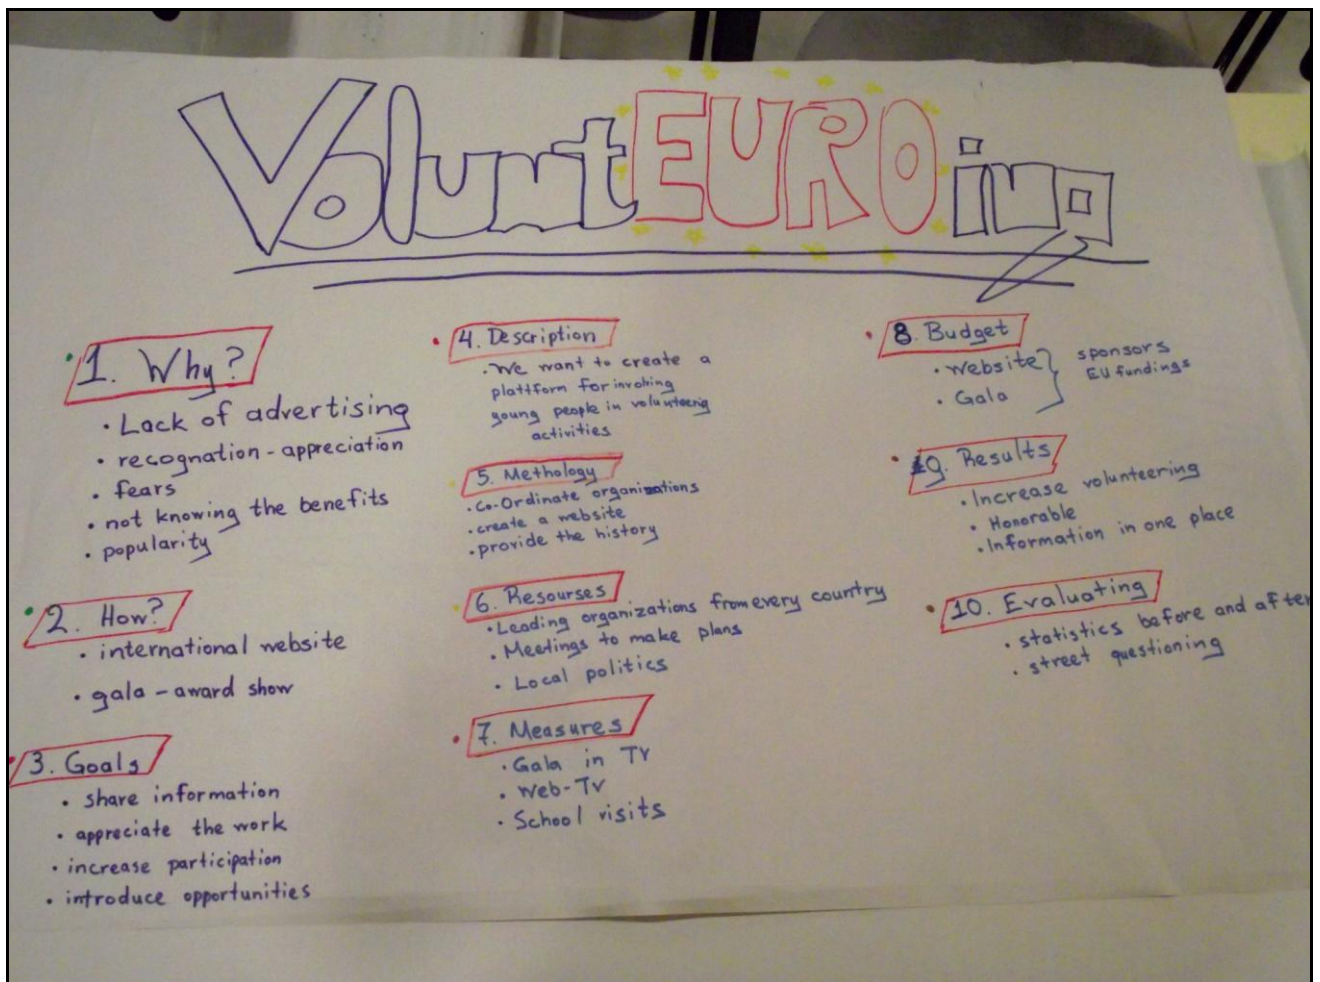 VoluntEUROing
1. Why?
• Lack of advertising
• recognation - appreciation
• fears
• not knowing the benefits
• popularity
2. How?
• international website
• gala - award show
3. Goals
• share information
• appreciate the work
• increase participation
• introduce opportunities
4. Description
• We want to create a
plattform for involving
young people in volunteering
activities
5. Methology
• Co-Ordinate organizations
• create a website
• provide the history
6. Resourses
• Leading organizations from every country
• Meetings to make plans
• Local politics
7. Measures
• Gala in TV
• Web-TV
• School visits
8. Budget
• Website } sponsors
• Gala } EU fundings
9. Results
• Increase volunteering
• Honorable
• Information in one place
10. Evaluating
• statistics before and after
• street questioning